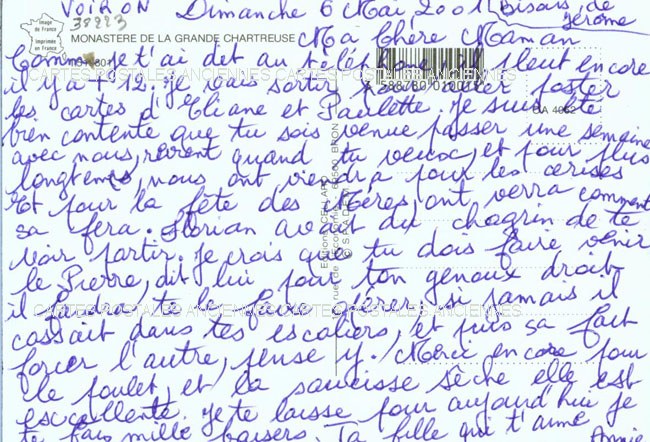 VOIRON Dimanche 6 Mai 2001 Bisous de Jérome
38223
Image de France
Imprimée en France
MONASTERE DE LA GRANDE CHARTREUSE
Ma Chère Maman
Comme je t'ai dit au téléphone, il pleut encore
il y a + 12. je vais sortir poster
les cartes d'Eliane et Paulette je suis été
bien contente que tu sois venue passer une semaine
avec nous, revient quand tu veux, et pour plus
longtemps, nous ont viendra pour les cerises
Et pour la fête des Mères, ont verra comment
sa fera. Florian avait du chagrin de te
voir partir. je crois que tu dois faire venir
le Pierre, dit lui pour ton genoux droit
il faut te le faire guérir si jamais il
cassait dans tes escaliers, et puis sa fait
forcer l'autre, pense y. Merci encore pour
le poulet, et la saucisse sèche elle est
excellente. je te laisse pour aujourd'hui je
te fais mille baisers. Ta fille qui t'aime Annie
CARTES POSTALES ANCIENNES CARTES POSTALES ANCIENNES
CARTES POSTALES ANCIENNES CARTES POSTALES ANCIENNES